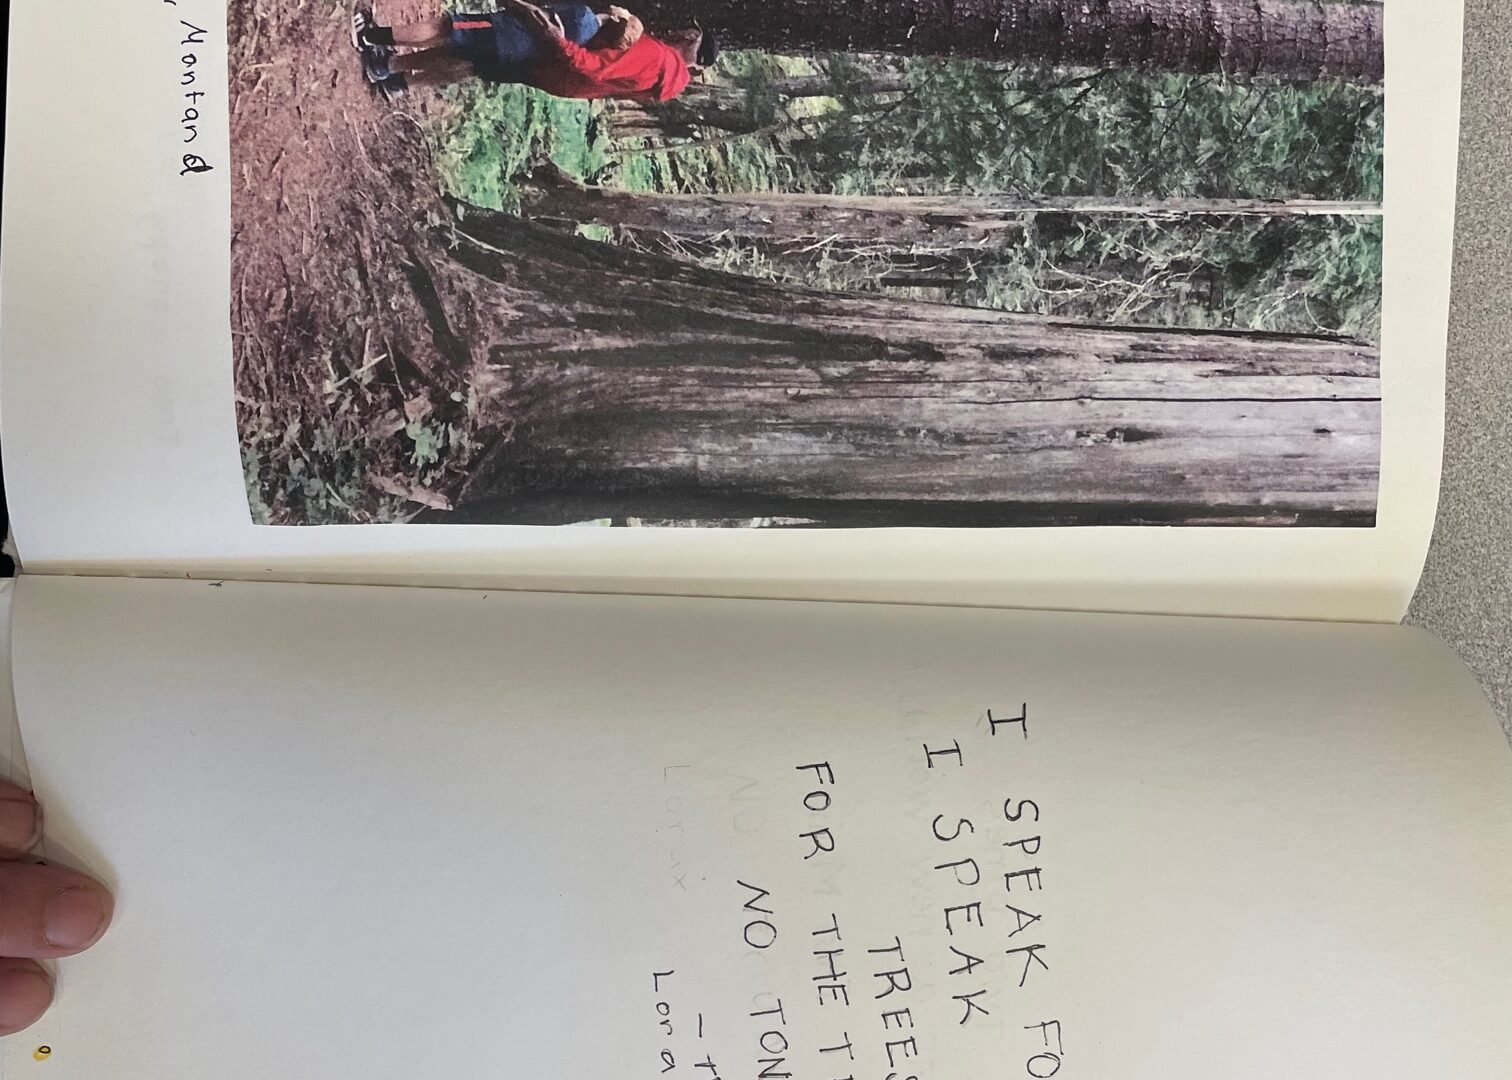 , Montana
I SPEAK FO
I SPEAK
TREES
FOR THE T
NO TON
Lora
Lorax